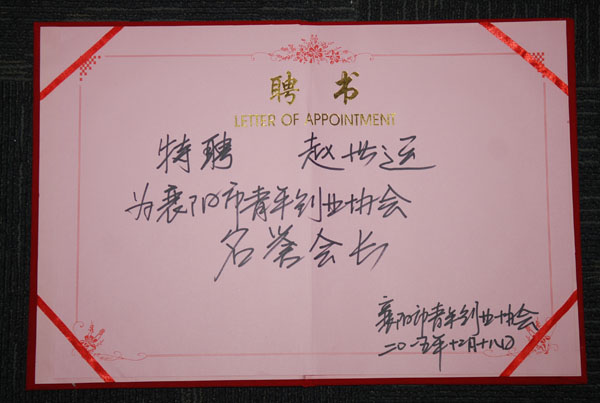 聘书
LETTER OF APPOINTMENT
特聘 赵世运
为襄阳市青年创业协会
名誉会长
襄阳市青年创业协会
二〇一五年十二月十八日